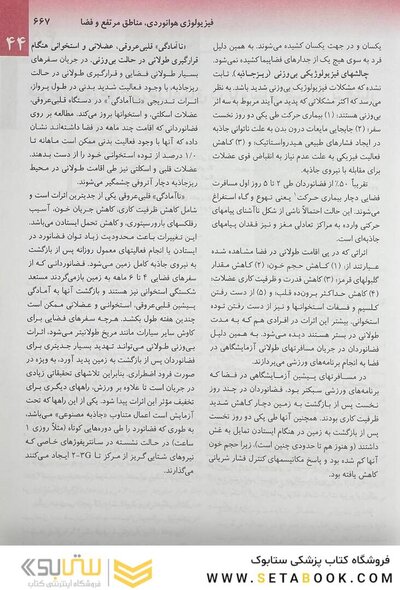 فیزیولوژی هوانوردی، مناطق مرتفع و فضا
۶۶۷
۴۴
یکسان و در جهت یکسان کشیده می‌شوند. به همین دلیل
فرد به سوی هیچ یک از جدارهای فضاپیما کشیده نمی‌شود.
چالشهای فیزیولوژیکی بی‌وزنی (ریزجاذبه). ثابت
نشده که مشکلات فیزیولوژیک بی‌وزنی شدید باشد. به نظر
می‌رسد که اکثر مشکلاتی که پدید می‌آیند مربوط به سه اثر
بی‌وزنی هستند: (۱) بیماری حرکت طی یکی دو روز نخست
سفر؛ (۲) جابجایی مایعات درون بدن به علت ناتوانی جاذبه
در ایجاد فشارهای طبیعی هیدرواستاتیک؛ و (۳) کاهش
فعالیت فیزیکی به علت عدم نیاز به انقباض قوی عضلات
برای مقابله با نیروی جاذبه.
تقریباً ۵۰٪ از فضانوردان طی ۲ تا ۵ روز اول مسافرت
فضایی دچار بیماری حرکت، یعنی تهوع و گاه استفراغ
می‌شوند. این حالت احتمالاً ناشی از شکل ناآشنای پیامهای
حرکتی وارده به مراکز تعادلی مغز و نیز فقدان پیامهای
جاذبه‌ای است.
اثراتی که در پی اقامت طولانی در فضا مشاهده شده
عبارتند از: (۱) کاهش حجم خون؛ (۲) کاهش مقدار
گلبولهای قرمز؛ (۳) کاهش قدرت و ظرفیت کاری عضلات؛
(۴) کاهش حداکثر برون‌ده قلب؛ و (۵) از دست رفتن
کلسیم و فسفات استخوانها و نیز از دست رفتن توده
استخوانی. بیشتر این اثرات در افرادی هم که به مدت
طولانی در بستر هستند دیده می‌شود. به همین دلیل
فضانوردان در جریان مسافرتهای طولانی آزمایشگاهی در
فضا به انجام برنامه‌های ورزشی می‌پردازند.
در مسافرتهای پیشین آزمایشگاهی در فضا که
برنامه‌های ورزشی سبکتر بود، فضانوردان در چند روز
نخست پس از بازگشت به زمین دچار کاهش شدید
ظرفیت کاری بودند. همچنین آنها طی یکی دو روز نخست
پس از بازگشت به زمین در هنگام ایستادن تمایل به غش
داشتند (و هنوز هم تا حدودی چنین است)، زیرا حجم خون
آنها کم شده بود و پاسخ مکانیسمهای کنترل فشار شریانی
کاهش یافته بود.
«ناآمادگی» قلبی‌عروقی، عضلانی و استخوانی هنگام
قرارگیری طولانی در حالت بی‌وزنی. در جریان سفرهای
بسیار طولانی فضایی و قرارگیری طولانی در حالت
ریزجاذبه، با وجود فعالیت شدید بدنی در طول پرواز،
اثرات تدریجی «ناآمادگی» در دستگاه قلبی‌عروقی،
عضلات اسکلتی، و استخوانها بروز می‌کند. مطالعه بر روی
فضانوردانی که اقامت چند ماهه در فضا داشته‌اند نشان
داده که آنها با وجود فعالیت بدنی ممکن است ماهانه تا
۱/۰ درصد از توده استخوانی خود را از دست بدهند.
عضلات قلبی و اسکلتی نیز طی اقامت طولانی در محیط
ریزجاذبه دچار آتروفی چشمگیر می‌شوند.
«ناآمادگی» قلبی‌عروقی یکی از جدیترین اثرات است و
شامل کاهش ظرفیت کاری، کاهش جریان خون، آسیب
رفلکسهای بارورسپتوری، و کاهش تحمل ایستادن می‌باشد.
این تغییرات باعث محدودیت زیاد توان فضانورد در
ایستادن یا انجام فعالیتهای معمول روزانه پس از بازگشت
به نیروی جاذبه کامل زمین می‌شود. فضانوردانی که از
سفرهای فضایی ۴ تا ۶ ماهه به زمین بازمی‌گردند مستعد
شکستگی استخوانی نیز هستند و بازگشت آنها به آمادگی
پیشین قلبی‌عروقی، استخوانی و عضلانی ممکن است
چندین هفته طول بکشد. هرچه سفرهای فضایی برای
کاوش سایر سیارات مانند مریخ طولانی‌تر می‌شود، اثرات
بی‌وزنی طولانی می‌تواند تهدید بسیار جدیتری برای
فضانوردان پس از بازگشت به زمین پدید آورد، به ویژه در
صورت فرود اضطراری. بنابراین تلاشهای تحقیقاتی زیادی
در جریان است تا علاوه بر ورزش، راههای دیگری برای
تخفیف مؤثر این اثرات پیدا شود. یکی از این راهها که تحت
آزمایش است اعمال متناوب «جاذبه مصنوعی» می‌باشد،
به طوری که فضانورد را طی دوره‌هایی کوتاه (مثلاً روزی ۱
ساعت) در حالت نشسته در سانتریفوژهای خاصی که
نیروهای شتابی گریز از مرکز تا 2-3G ایجاد می‌کنند
می‌گذارند.
فروشگاه کتاب پزشکی ستابوک
WWW.SETABOOK.COM
ستابوک
فروشگاه اینترنتی کتاب